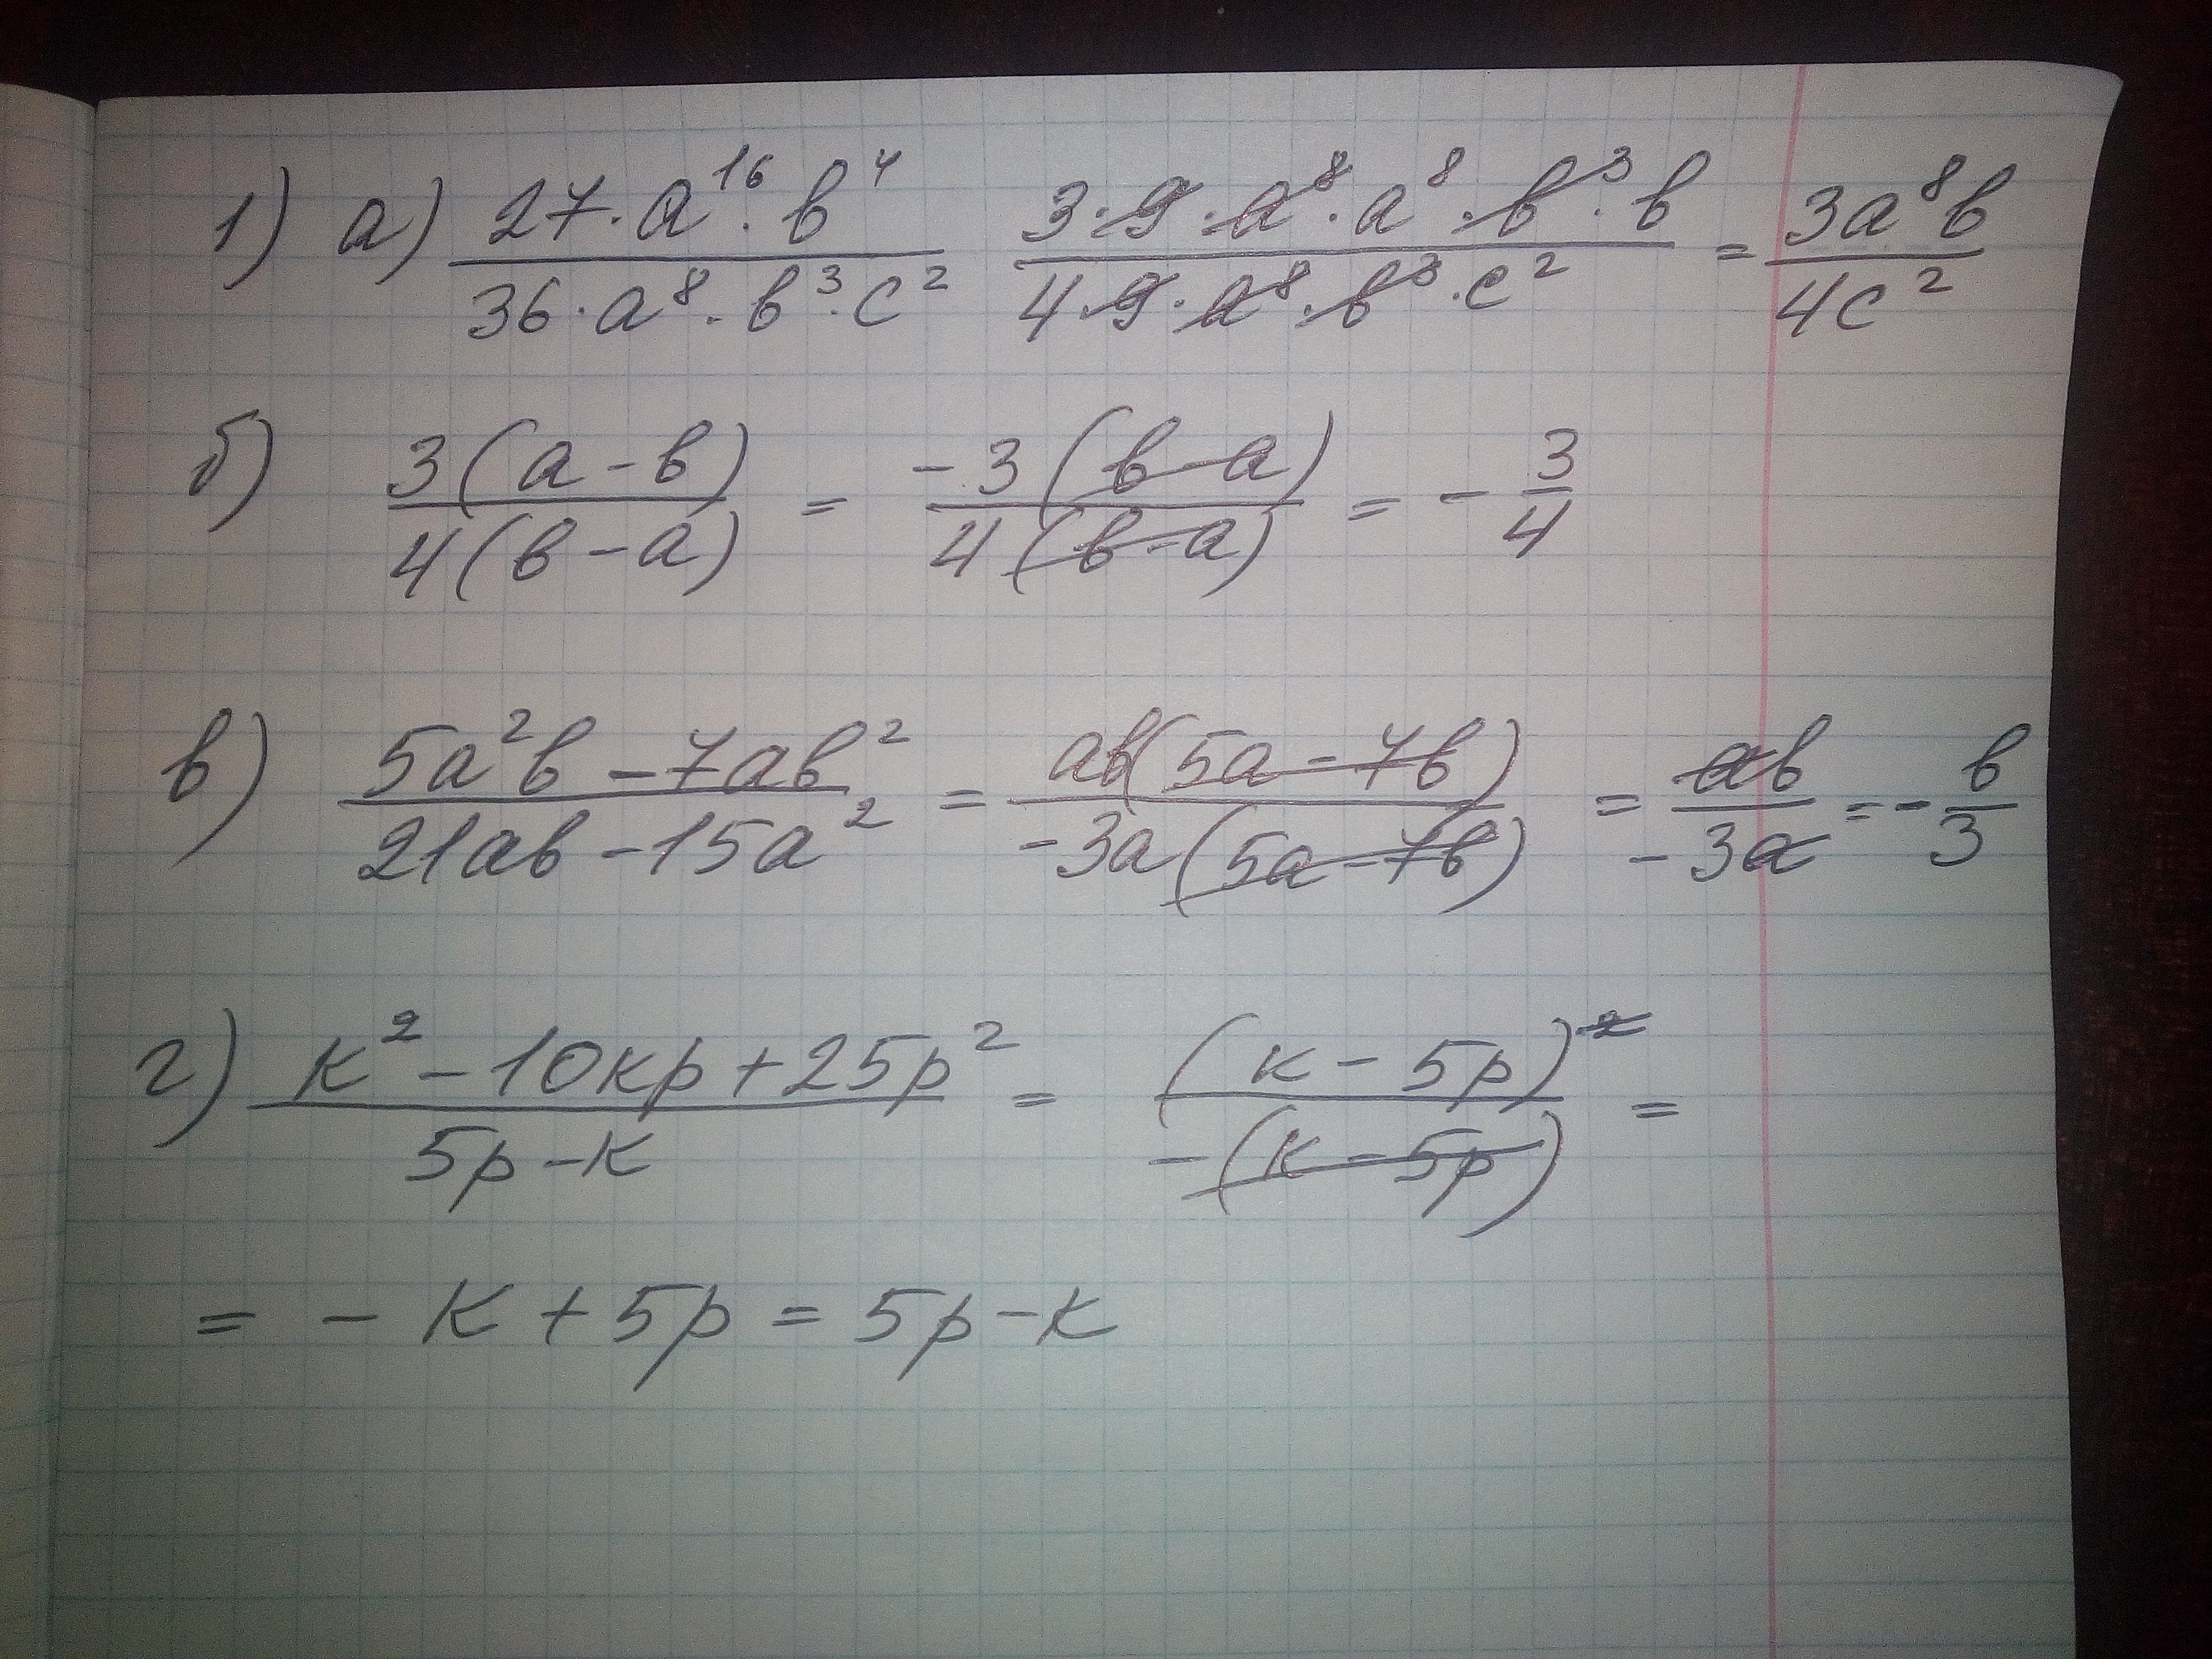 1) а) \frac{27·a^{16}·b^4}{36·a^8·b^3·c^2} \frac{3·9·a^8·a^8·b^3·b}{4·9·a^8·b^3·c^2} = \frac{3a^8b}{4c^2}
б) \frac{3(a-b)}{4(b-a)} = \frac{-3(b-a)}{4(b-a)} = -\frac{3}{4}
в) \frac{5a^2b-7ab^2}{21ab-15a^2} = \frac{ab(5a-7b)}{-3a(5a-7b)} = \frac{ab}{-3a} = -\frac{b}{3}
г) \frac{k^2-10kp+25p^2}{5p-k} = \frac{(k-5p)^2}{-(k-5p)} =
= -k+5p = 5p-k